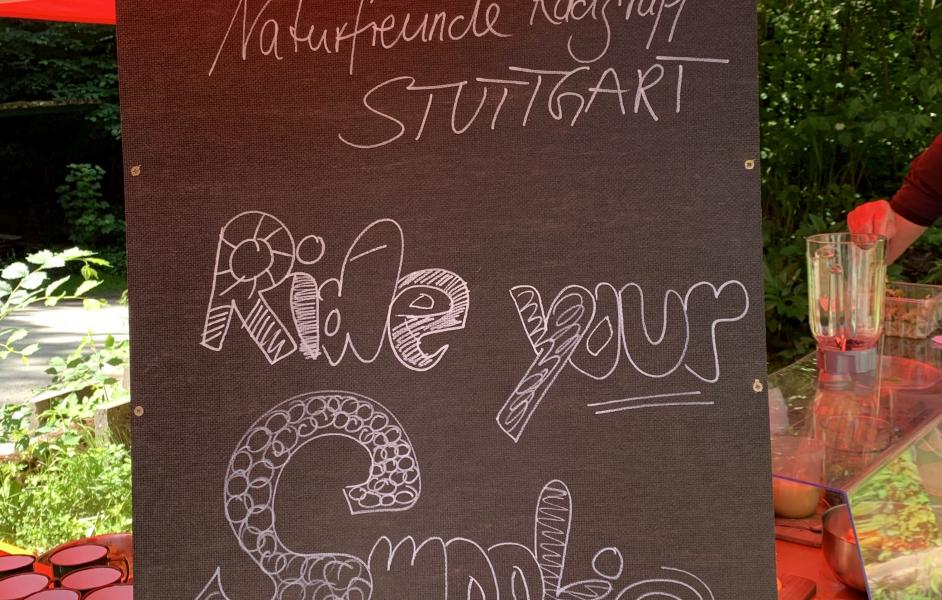 Naturfreunde Radgruppe
STUTTGART
Ride your
Smoothie